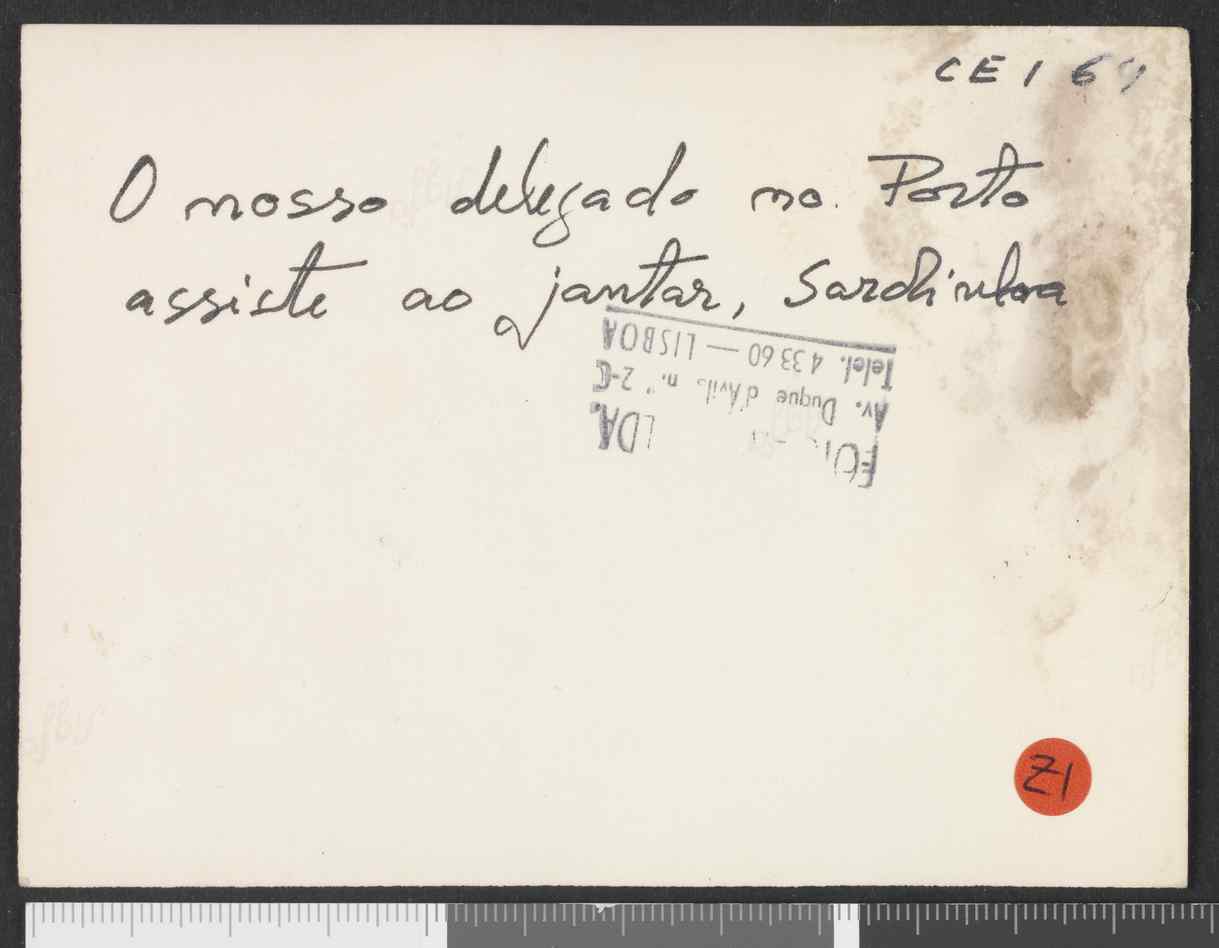 CEI 69
O nosso delegado no Porto
assiste ao jantar, Sardinha
LDA.
Av. Duque d'Avila n.º 2-C
Telef. 4 33 60 — LISBOA
Z1